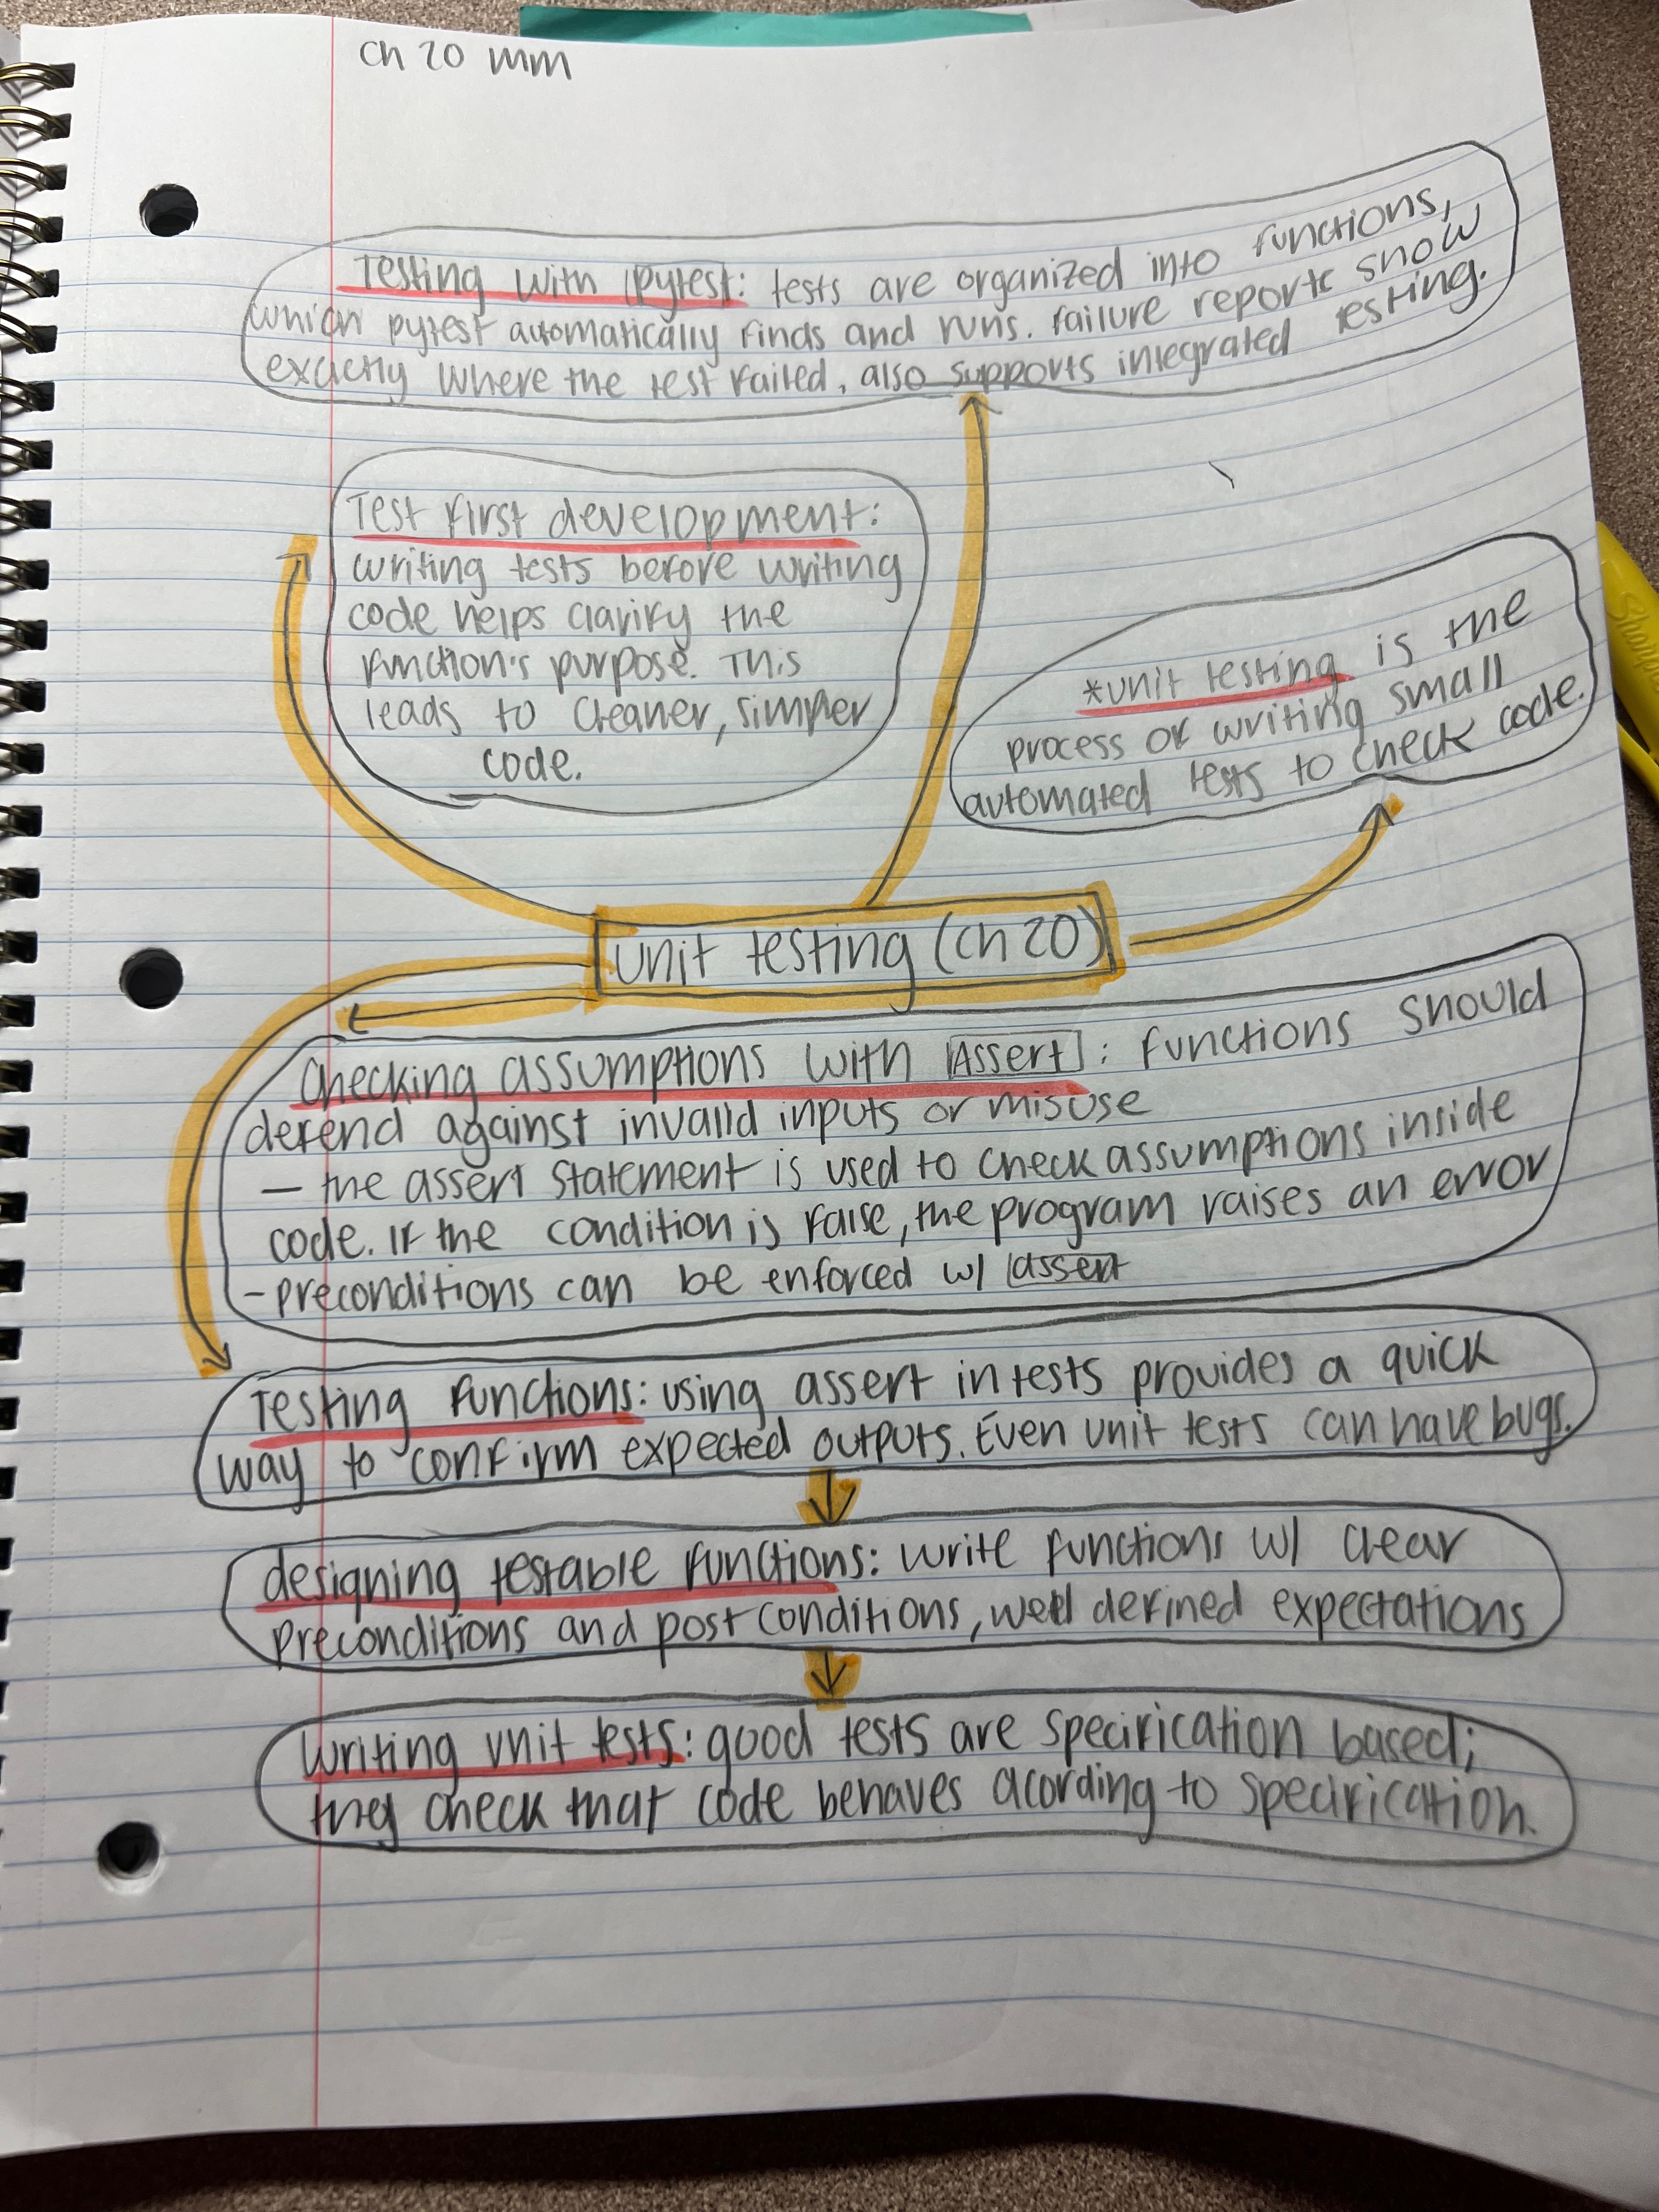 ch 20 mm
Testing with pytest: tests are organized into functions,
which pytest automatically finds and runs. failure reports show
exactly where the test failed, also supports integrated testing.
Test first development:
writing tests before writing
code helps clarify the
function's purpose. This
leads to cleaner, simpler
code.
*unit testing is the
process of writing small
automated tests to check code.
unit testing (ch 20)
Checking assumptions with Assert: functions should
defend against invalid inputs or misuse
– the assert statement is used to check assumptions inside
code. If the condition is false, the program raises an error
- preconditions can be enforced w/ assert
Testing functions: using assert in tests provides a quick
way to confirm expected outputs. Even unit tests can have bugs.
designing testable functions: write functions w/ clear
preconditions and post conditions, well defined expectations
Writing unit tests: good tests are specification based;
they check that code behaves acording to specification.